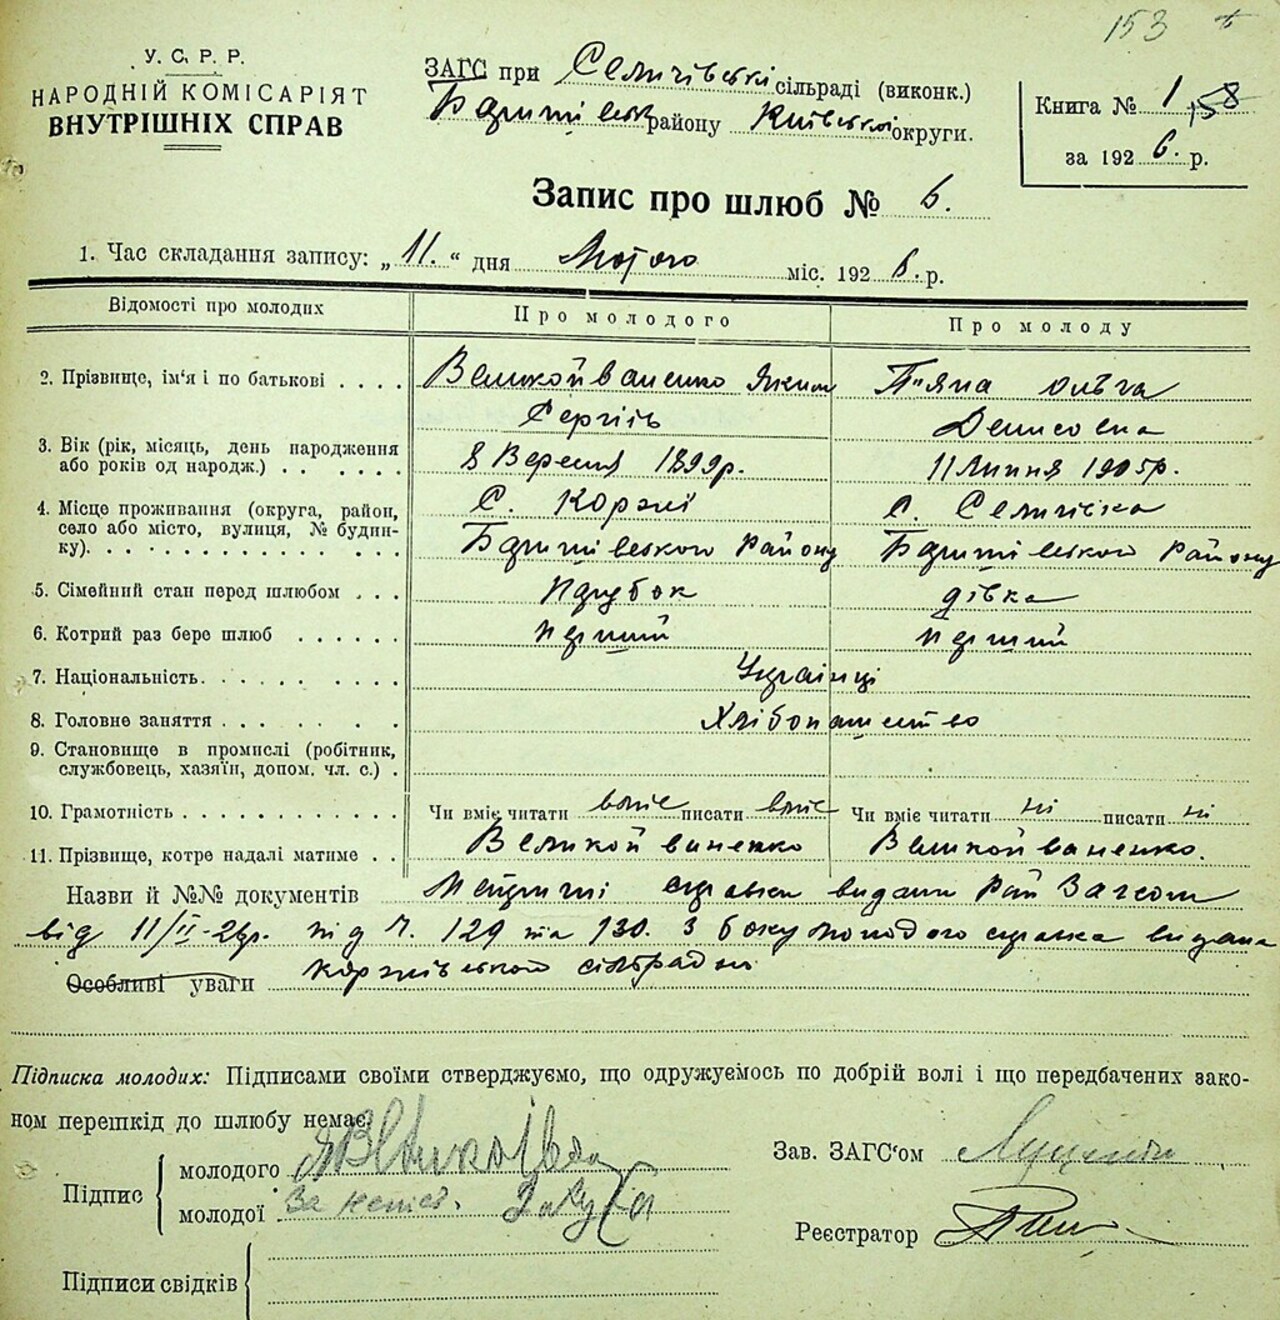 153
У. С. Р. Р.
НАРОДНІЙ КОМІСАРІЯТ
ВНУТРІШНІХ СПРАВ
ЗАГС при Селичівській сільраді (виконк.)
Баришівськ району Київської округи.
Книга № 1 158
за 1926. р.
Запис про шлюб № 6.
1. Час складання запису: „11.“ дня Лютого міс. 1926. р.
Відомості про молодих
Про молодого
Про молоду
2. Прізвище, ім'я і по батькові . . . .
Великойваненко Яким
Сергіїв
П'яна Ольга
Денисовна
3. Вік (рік, місяць, день народження
або років од народж.) . . . . . .
8 Вересня 1899р.
11 Липня 1905р.
4. Місце проживання (округа, район,
село або місто, вулиця, № будин-
ку). . . . . . . . . . . . . . .
С. Коржі
Баришівського Району
С. Селичівка
Баришівського Району
5. Сімейний стан перед шлюбом . . .
Парубок
дівка
6. Котрий раз бере шлюб . . . . . .
перший
перший
7. Національність. . . . . . . . . .
Українці
8. Головне заняття . . . . . . .
Хлібопашество
9. Становище в промислі (робітник,
службовець, хазяїн, допом. чл. с.) .
10. Грамотність . . . . . . . . . . . .
Чи вміє читати вміє писати вміє
Чи вміє читати ні писати ні
11. Прізвище, котре надалі матиме . .
Великойваненко
Великойваненко.
Назви й №№ документів справки видани Рай Загсом
від 11/II-26р. під ч. 129 та 130. З боку молодого справка видана
Коржівською сільрадою
Особливі уваги
Підписка молодих: Підписами своїми стверджуємо, що одружуємось по добрій волі і що передбачених зако-
ном перешкід до шлюбу немає.
Підпис
молодого
молодої За непис.
Зав. ЗАГС'ом
Реєстратор
Підписи свідків